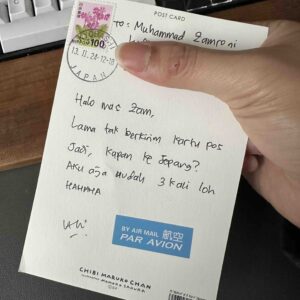 POST CARD
To: Muhammad Zamroni
100
13.11.24.12-18
JAPAN
Halo mas Zam,
Lama tak berkirim kartu pos
Jadi, kapan ke Jepang?
Aku aja sudah 3 kali loh
HAHAHA
BY AIR MAIL 航空
PAR AVION
CHIBI MARUKO CHAN